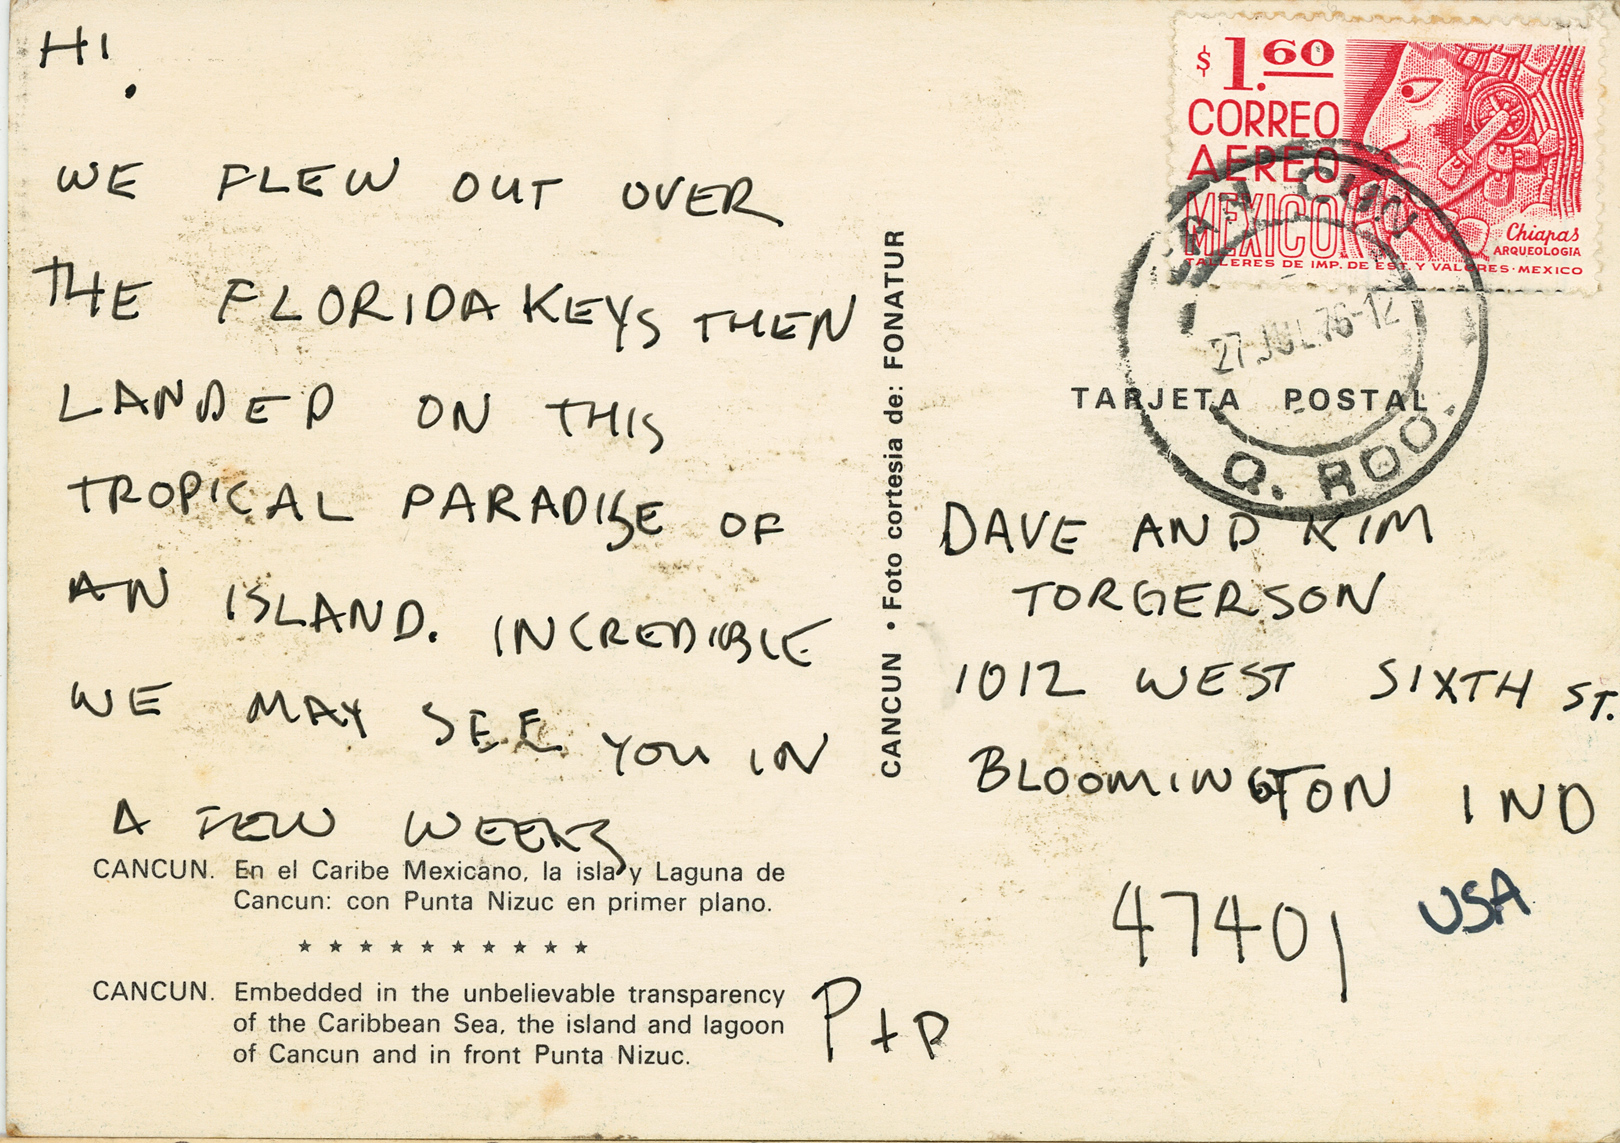 HI.
WE FLEW OUT OVER
THE FLORIDA KEYS THEN
LANDED ON THIS
TROPICAL PARADISE OF
AN ISLAND. INCREDIBLE
WE MAY SEE YOU IN
A FEW WEEKS
P + P
CANCUN. En el Caribe Mexicano, la isla y Laguna de
Cancun: con Punta Nizuc en primer plano.
* * * * * * * * * *
CANCUN. Embedded in the unbelievable transparency
of the Caribbean Sea, the island and lagoon
of Cancun and in front Punta Nizuc.
CANCUN • Foto cortesia de: FONATUR
$1.60
CORREO
AEREO
MEXICO
Chiapas
ARQUEOLOGIA
TALLERES DE IMP. DE EST. Y VALORES · MEXICO
CAN CUN
27 JUL 76-12
Q. ROO.
TARJETA POSTAL
DAVE AND KIM
TORGERSON
1012 WEST SIXTH ST.
BLOOMINGTON IND
47401 USA